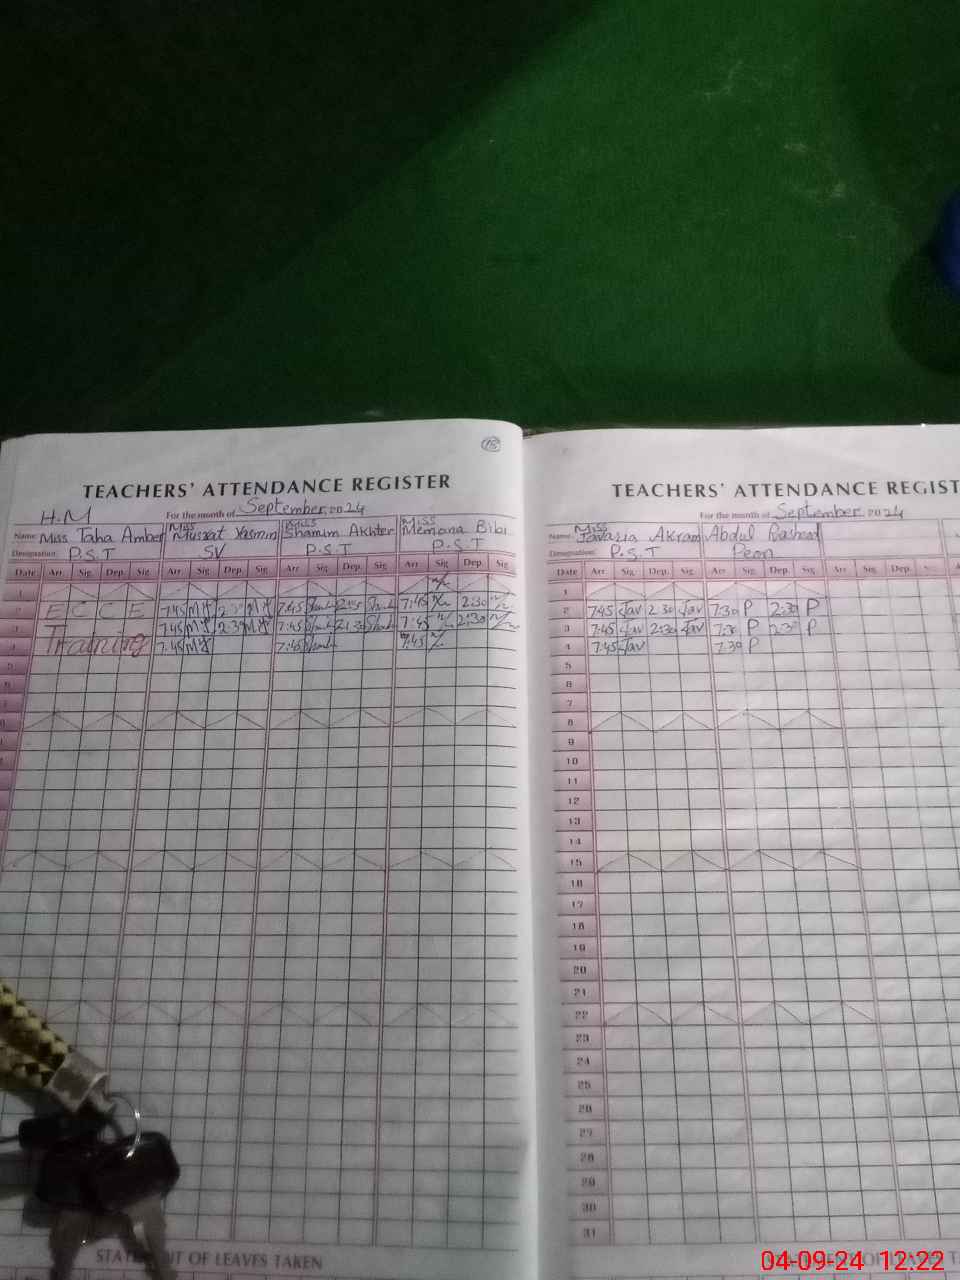 15
TEACHERS' ATTENDANCE REGISTER
H.M For the month of September 2024
Name: Miss Taha Amber Miss Musrat Yasmin Miss Shamim Akhter Miss Memona Bibi
Designation: P.S.T SV P.S.T P.S.T
Date Arr. Sig. Dep. Sig. Arr Sig Dep. Sig Arr Sig. Dep. Sig Arr Sig. Dep. Sig
1
2 E C C E 7:45 2:30 7:45 7:45 2:30
3 Training 7:45 2:30 7:45 2:30 7:45 2:30
4 7:45 7:45 7:45
STATEMENT OF LEAVES TAKEN
TEACHERS' ATTENDANCE REGIST
For the month of September 2024
Name: Miss Javaria Akram Abdul Rasheed
Designation: P.S.T Peon
Date Arr Sig. Dep. Sig. Arr Sig. Dep. Sig. Arr Sig. Dep. Sig
1
2 7:45 Jav 2:30 Jav 7:30 P 2:30 P
3 7:45 Jav 2:30 Jav 7:30 P 2:30 P
4 7:45 Jav 7:30 P
5
6
7
8
9
10
11
12
13
14
15
16
17
18
19
20
21
22
23
24
25
26
27
28
29
30
31
04-09-24 12:22